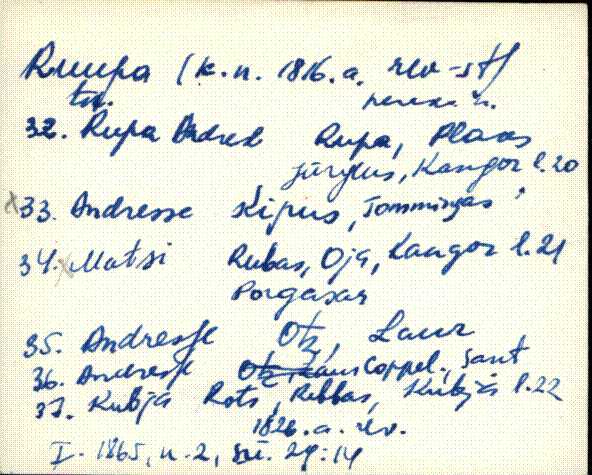 Ruupa (k.n. 1816.a. rev-st)
tn. perek. n.
32. Rupa Andred Rupa, Plaas
Jürytus, Kangor l.20
x33. Andresse Kipus, Tommingas
34. x Matsi Rubas, Oja, Kangor l.21
Porgasar
35. Andresse Ots, Laur
36. Andresse Coppel., Sant
37. Kubja Rots, Rebbas, Kubjas l.22
1826.a. rev.
I. 1865, n. 2, sü. 29:14